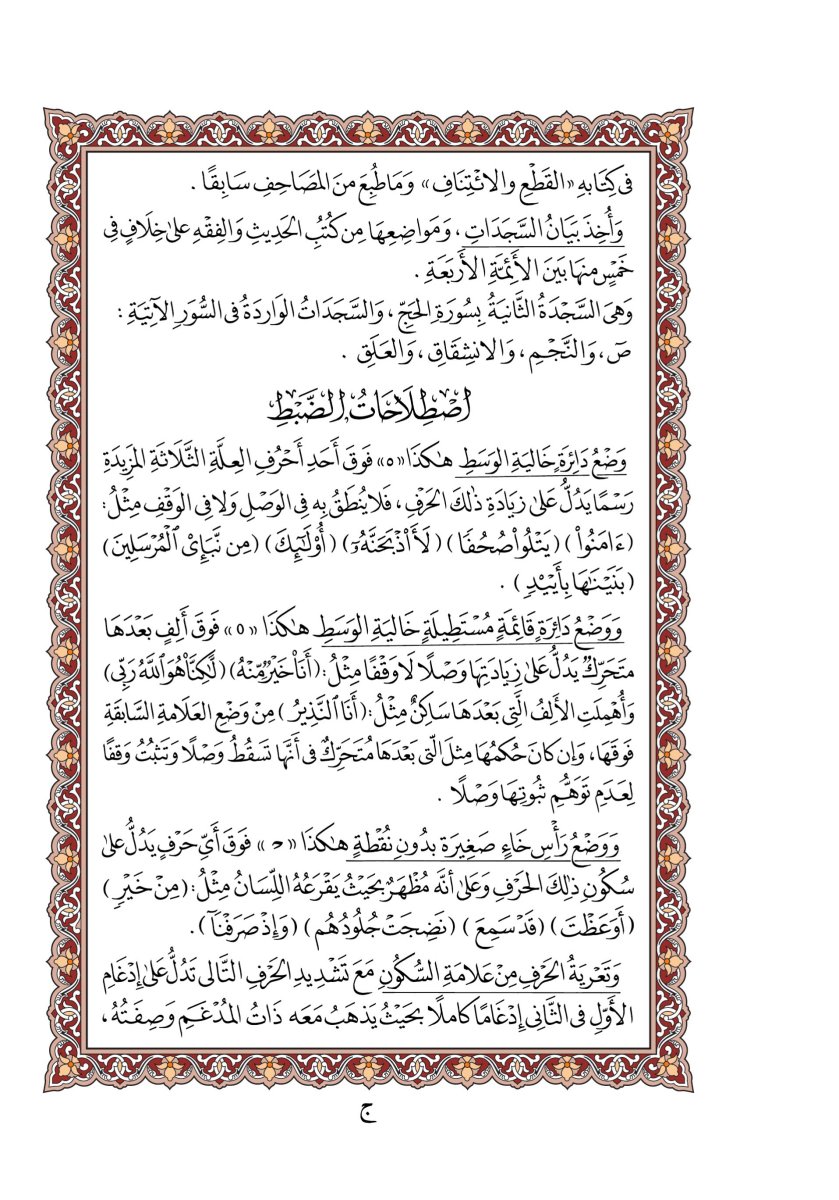 فى كِتَابهِ «القَطْعِ والِائْتِنَافِ» وَمَا طُبِعَ منَ المَصَاحِفِ سَابِقًا .
وَأُخِذَ بَيَانُ السَّجَدَاتِ ، وَمَوَاضِعِهَا مِن كُتُبِ الحَدِيثِ وَالفِقْهِ عَلىٰ خِلَافٍ فِى
خَمْسٍ منهَا بَيْنَ الأَئِمَّةِ الأَرْبَعَةِ .
وَهِىَ السَّجْدَةُ الثَّانيَةُ بِسُورَةِ الحَجِّ ، وَالسَّجَدَاتُ الوَارِدَةُ فى السُّوَرِ الآتِيَةِ :
صٓ ، وَالنَّجْـمِ ، وَالِانشِقَاقِ ، وَالعَلَقِ .
اصْطِلَاحَاتُ الضَّبْطِ
وَضْعُ دَائِرَةٍ خَاليَةِ الوَسَطِ هٰكذَا «ه» فَوقَ أَحَدِ أَحْرُفِ العِلَّةِ الثَّلَاثَةِ المَزِيدَةِ
رَسْمًا يَدُلُّ عَلىٰ زيَادَةِ ذٰلكَ الحَرْفِ ، فَلَا يُنطَقُ بهِ فِى الوَصْلِ وَلَا فى الوَقْفِ مِثْلُ:
(ءَامَنُوا۟) (يَتْلُوا۟ صُحُفًا) (لَأَا۟ذْبَحَنَّهُۥٓ) (أُو۟لَٰٓئِكَ) (مِن نَّبَإِى۟ ٱلْمُرْسَلِينَ)
(بَنَيْنَٰهَا بِأَيْي۟دٍ) .
وَوَضْعُ دَائِرَةٍ قَائِمَةٍ مُسْتَطِيلَةٍ خَاليَةِ الوَسَطِ هٰكَذَا «٥» فَوْقَ أَلِفٍ بَعْدَهَا
متَحَرِّكٌ يَدُلُّ عَلىٰ زِيَادَتهَا وَصْلًا لَا وَقْفًا مِثْلُ: (أَنَا۠ خَيْرٌ مِّنْهُ) (لَّٰكِنَّا۠ هُوَ ٱللَّهُ رَبِّى)
وَأُهْمِلَتِ الأَلِفُ الَّتِى بَعْدَهَا سَاكِنٌ مِثْلُ: (أَنَا ٱلنَّذِيرُ) مِنْ وَضْعِ العَلَامةِ السَّابقَةِ
فَوقَهَا، وَإِن كانَ حُكمُهَا مِثلَ الّتى بَعْدَهَا مُتَحَرِّكٌ فى أَنَّهَا تَسقُطُ وَصْلًا وَتَثبُتُ وَقفًا
لِعَدَمِ تَوَهُّمِ ثُبُوتِهَا وَصْلًا .
وَوَضْعُ رَأْسِ خَاءٍ صَغِيرَة بِدُونِ نُقْطَةٍ هٰكَذَا «ح» فَوقَ أَىِّ حَرْفٍ يَدُلُّ عَلىٰ
سُكُونِ ذٰلِكَ الحَرْفِ وَعَلىٰ أنَّه مُظْهَرٌ بحَيْثُ يَقْرَعُهُ اللِّسَانُ مِثْلُ: (مِنْ خَيْرٍ)
(أَوَعَظْتَ) (قَدْ سَمِعَ) (نَضِجَتْ جُلُودُهُم) (وَإِذْ صَرَفْنَآ).
وَتَعْرِيَةُ الحَرْفِ مِنْ عَلَامَةِ السُّكُونِ مَعَ تَشْدِيدِ الحَرْفِ التَّالى تَدُلُّ عَلىٰ إِدْغَامِ
الأَوَّلِ فى الثَّانِى إِدْغَامًا كاملًا بحَيْثُ يَذهَبُ مَعَه ذَاتُ المُدْغَـمِ وَصِفَتُهُ،
ج